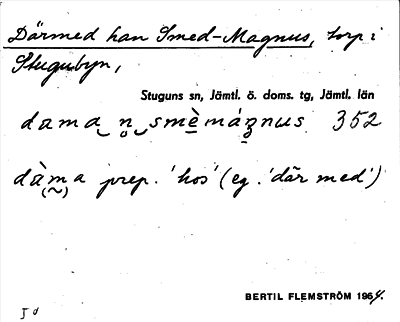 Därmed han Smed-Magnus, torp i
Stugubyn,
Stuguns sn, Jämtl. ö. doms. tg, Jämtl. län
dama‿n̥‿smèmáʒnus 352
dàma prep. 'hos' (eg. 'där med')
(~)
BERTIL FLEMSTRÖM 1964.